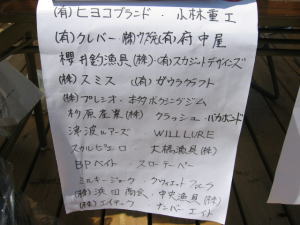 (有)ヒヨコブランド・小林重工
(有)クレバー・(株)ウズ潮(有)府中屋
櫻井釣漁具(株)・(有)スカジットデザインズ
(株)スミス (有)ガウラクラフト
(株)プレシオ・オタクボクシングジム
杉原産業(株)・クラッシュ・バカボンド
津波ルアーズ WILL LURE
スカルピエロ 大橋漁具(株)
BPベイト・スローテーパー
ミルキージョーク・クワイエットファンク
(株)浜田商会・中央漁具(株)
(株)エイテック ナンバーエイト